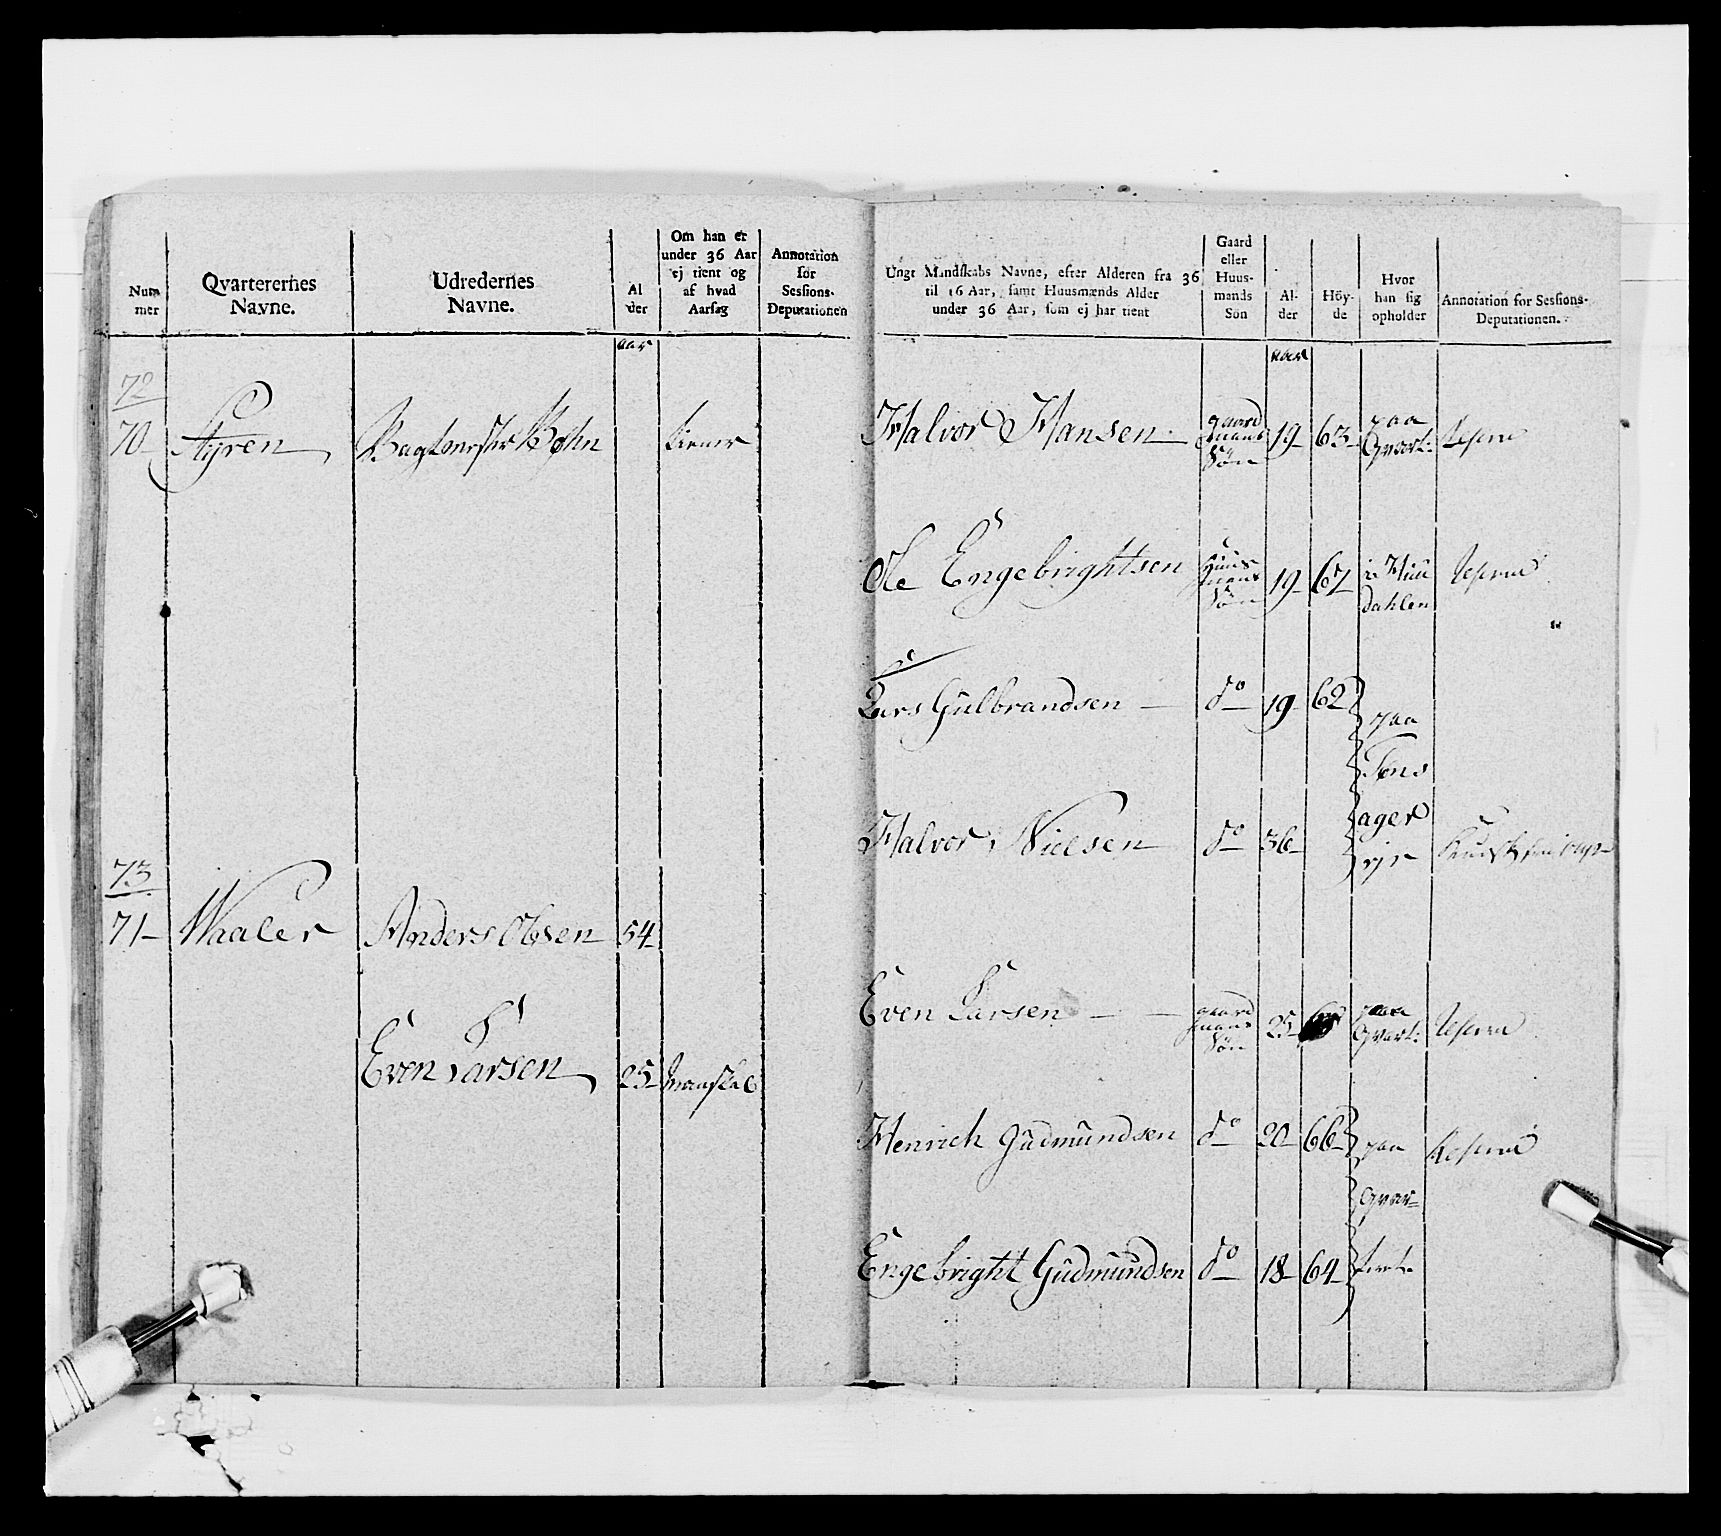 Num
mer
Qvarterernes
Navne.
Udredernes
Navne.
Al
der
Om han er
under 36 Aar
ej tient og
af hvad
Aarsag
Annotation
for
Sessions-
Deputationen
aar
72
70- Styren
tiener
73
71- Waaler Anders Olsen 54-
Even Larsen 25-
Ungt Mandskabs Navne, efter Alderen fra 36
til 16 Aar, samt Huusmænds Alder
under 36 Aar, som ej har tient
Gaard
eller
Huus-
mands
Søn
Al-
der
Höy-
de
Hvor
han sig
opholder
Annotation for Sessions-
Deputationen.
aar
Halvor Hansen gaard mans Søn 19- 63- paa Qvart:
Ole Engebrightsen Huus mans Søn 19- 67- dahlen
Lars Gulbrandsen - do 19- 62 paa
ager
Halvor Nielsen do 36-
Even Larsen - - gaard mans Søn 25 paa Qvart:
Henrich Gudmundsen do 20- 66- paa
Qvar-
Engebright Gudmundsen do 18- 64-